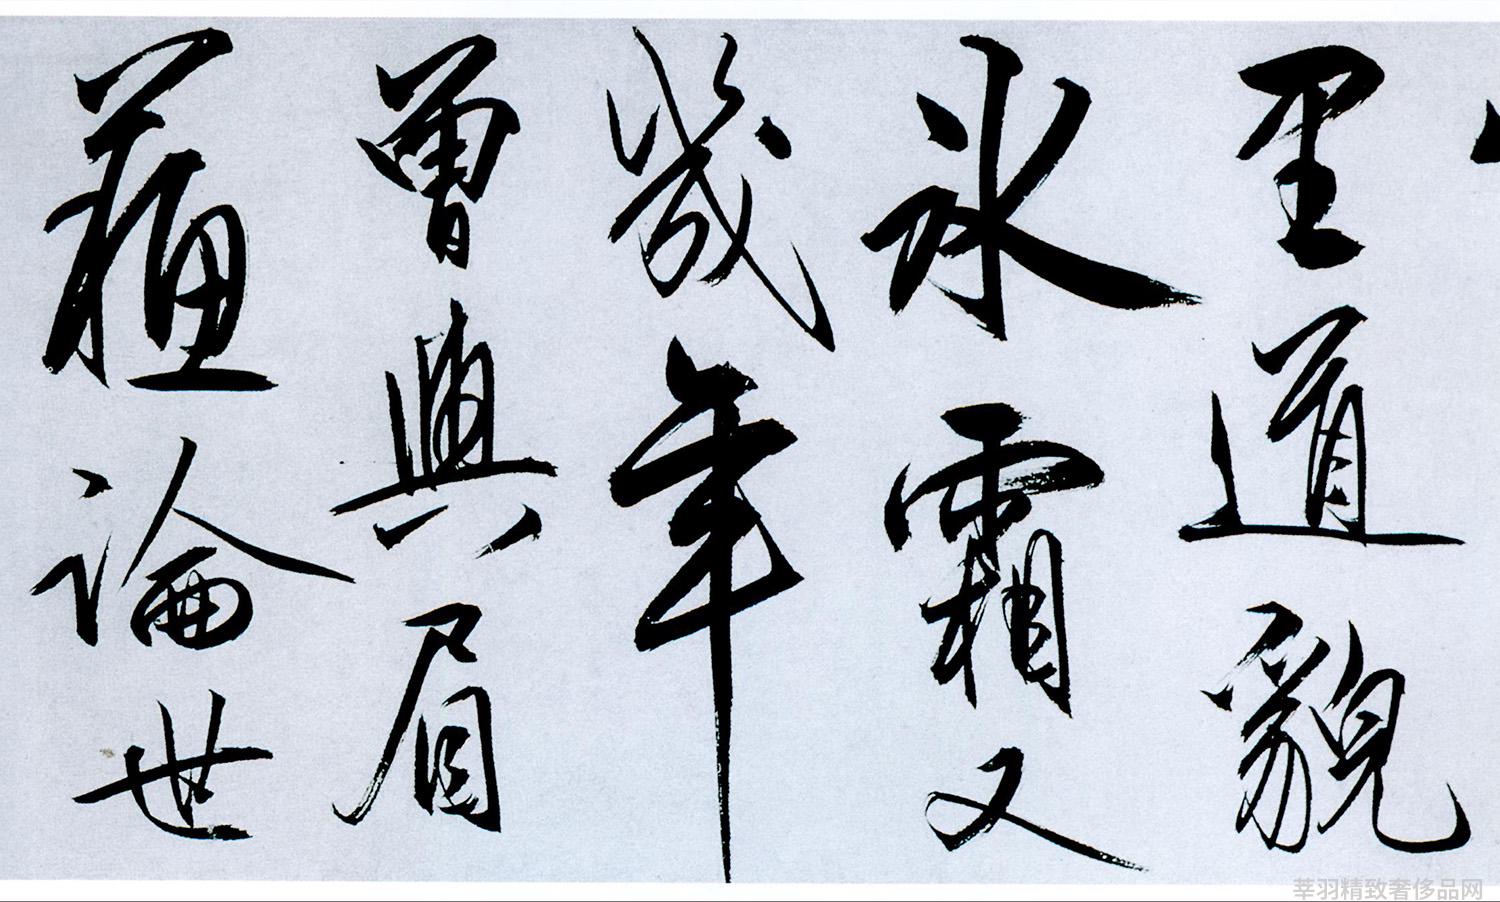 里道貌
冰霜又
幾年
曾與眉
蘓論世
莘羽精致奢侈品网